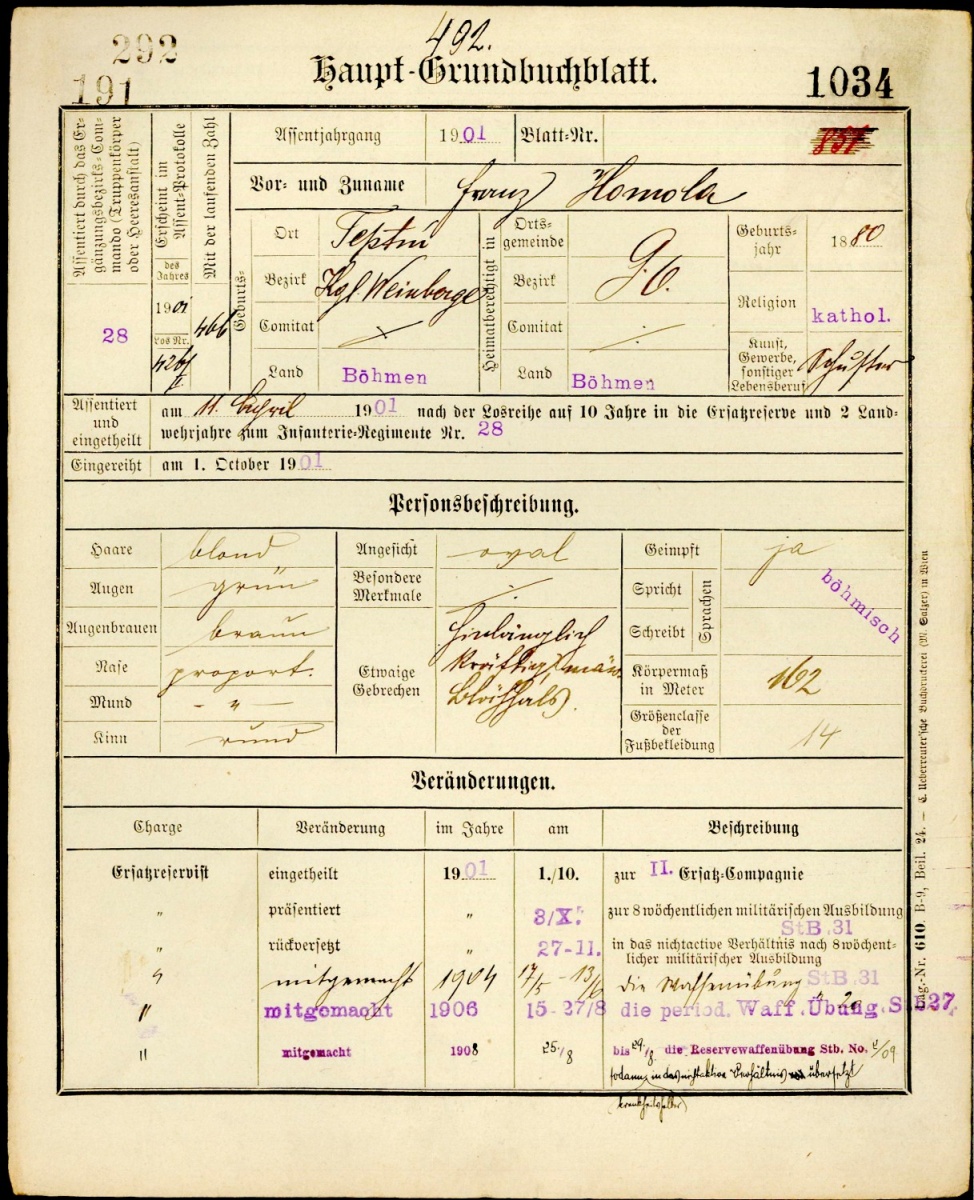 292
492.
191
Haupt-Grundbuchblatt.
1034
Assentiert durch das Ergänzungsbezirks-Commando (Truppenkörper oder Heeresanstalt)
28
Erscheint im Assent-Protokolle
des Jahres
1901
Los Nr.
426/II
Mit der laufenden Zahl
466
Assentjahrgang 1901 Blatt-Nr. 851
Vor- und Zuname Franz Homola
Geburts-
Ort Teptín
Bezirk Kgl. Weinberge
Comitat
Land Böhmen
Heimatberechtigt in
Ortsgemeinde
Bezirk
Comitat ./.
Land Böhmen
Geburtsjahr 1880
Religion kathol.
Kunst, Gewerbe, sonstiger Lebensberuf Schuster
Assentiert und eingetheilt
am 11. April 1901 nach der Losreihe auf 10 Jahre in die Ersatzreserve und 2 Land-
wehrjahre zum Infanterie-Regimente Nr. 28
Eingereiht am 1. October 1901
Personsbeschreibung.
Haare blond
Augen grün
Augenbrauen braun
Nase proport.
Mund - " -
Kinn rund
Angesicht oval
Besondere Merkmale ./.
Etwaige Gebrechen
hinlänglich
kräftig,
Blähhals).
Geimpft ja
Spricht
Schreibt
Sprachen
böhmisch
Körpermaß in Meter 162
Größenclasse der Fußbekleidung 14
Veränderungen.
Charge Veränderung im Jahre am Beschreibung
Ersatzreservist eingetheilt 1901 1./10. zur II. Ersatz-Compagnie
" präsentiert " 3/X. zur 8 wöchentlichen militärischen Ausbildung
StB.31
" rückversetzt " 27-11. in das nichtactive Verhältnis nach 8 wöchent-
licher militärischer Ausbildung
StB.31
" mitgemacht 1904 17/5 - 13/6 die Waffenübung
" mitgemacht 1906 15-27/8 die period. Waff.Übung. StB27.
" mitgemacht 1908 25./8 bis 29./8. die Reservewaffenübung Stb. No. 2/09
sodann in das nichtaktive Verhältnis übersetzt
(krankheitshalber)
Lag.-Nr. 610. B-9, Beil. 24. — C. Ueberreuter'sche Buchdruckerei (M. Salzer) in Wien